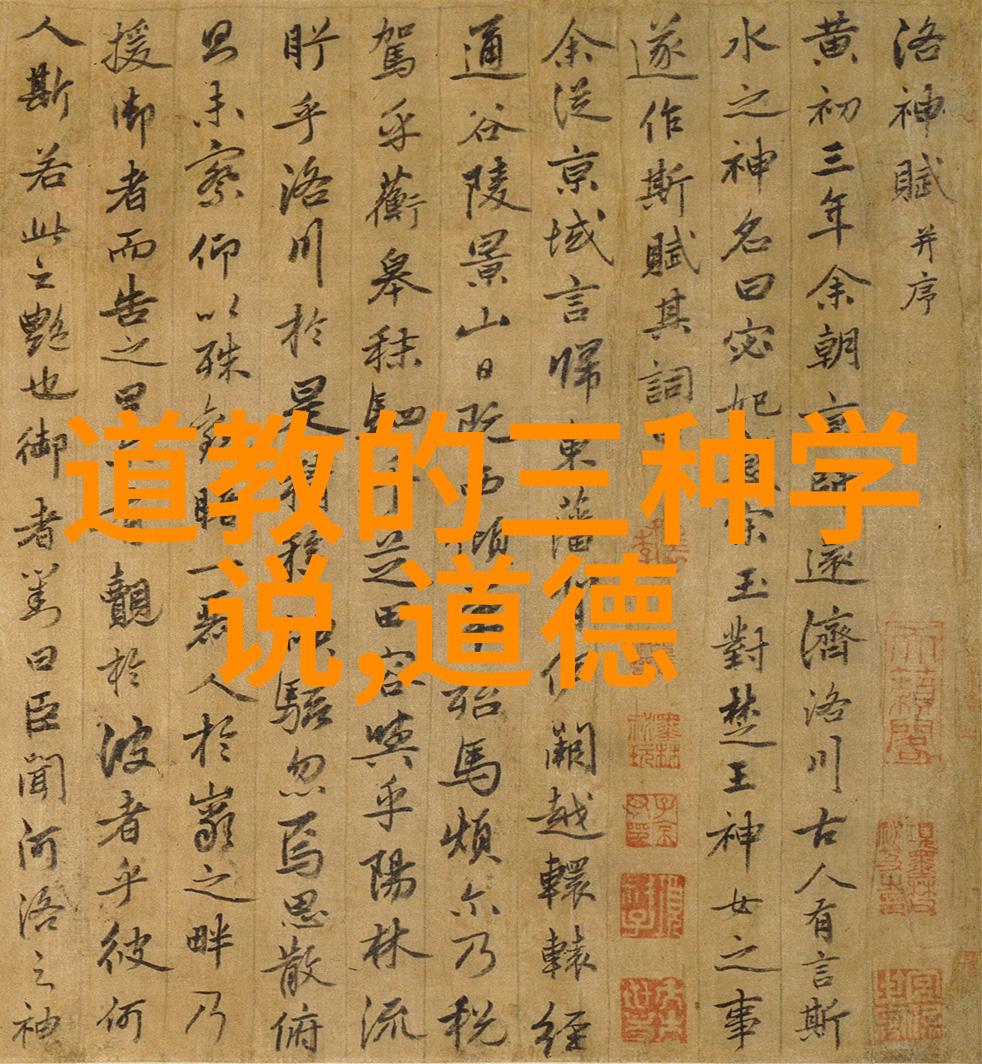 洛神賦并序
黄初三年余朝京師還濟洛川古人有言斯
水之神名曰宓妃感宋玉對楚王神女之事
遂作斯賦其詞
余從京域言歸東藩背伊闕越轘轅經
通谷陵景山日既西傾車殆馬煩尒乃税
駕乎蘅皋秣駟乎芝田容與乎陽林流
眄乎洛川於是精移神駭忽焉思散俯
則未察仰以殊觀睹一麗人於巖之畔乃
援御者而告之曰覿於彼者乎彼何
人斯若此之艷也御者對曰臣聞河洛之神
道教的三种学
说,道德